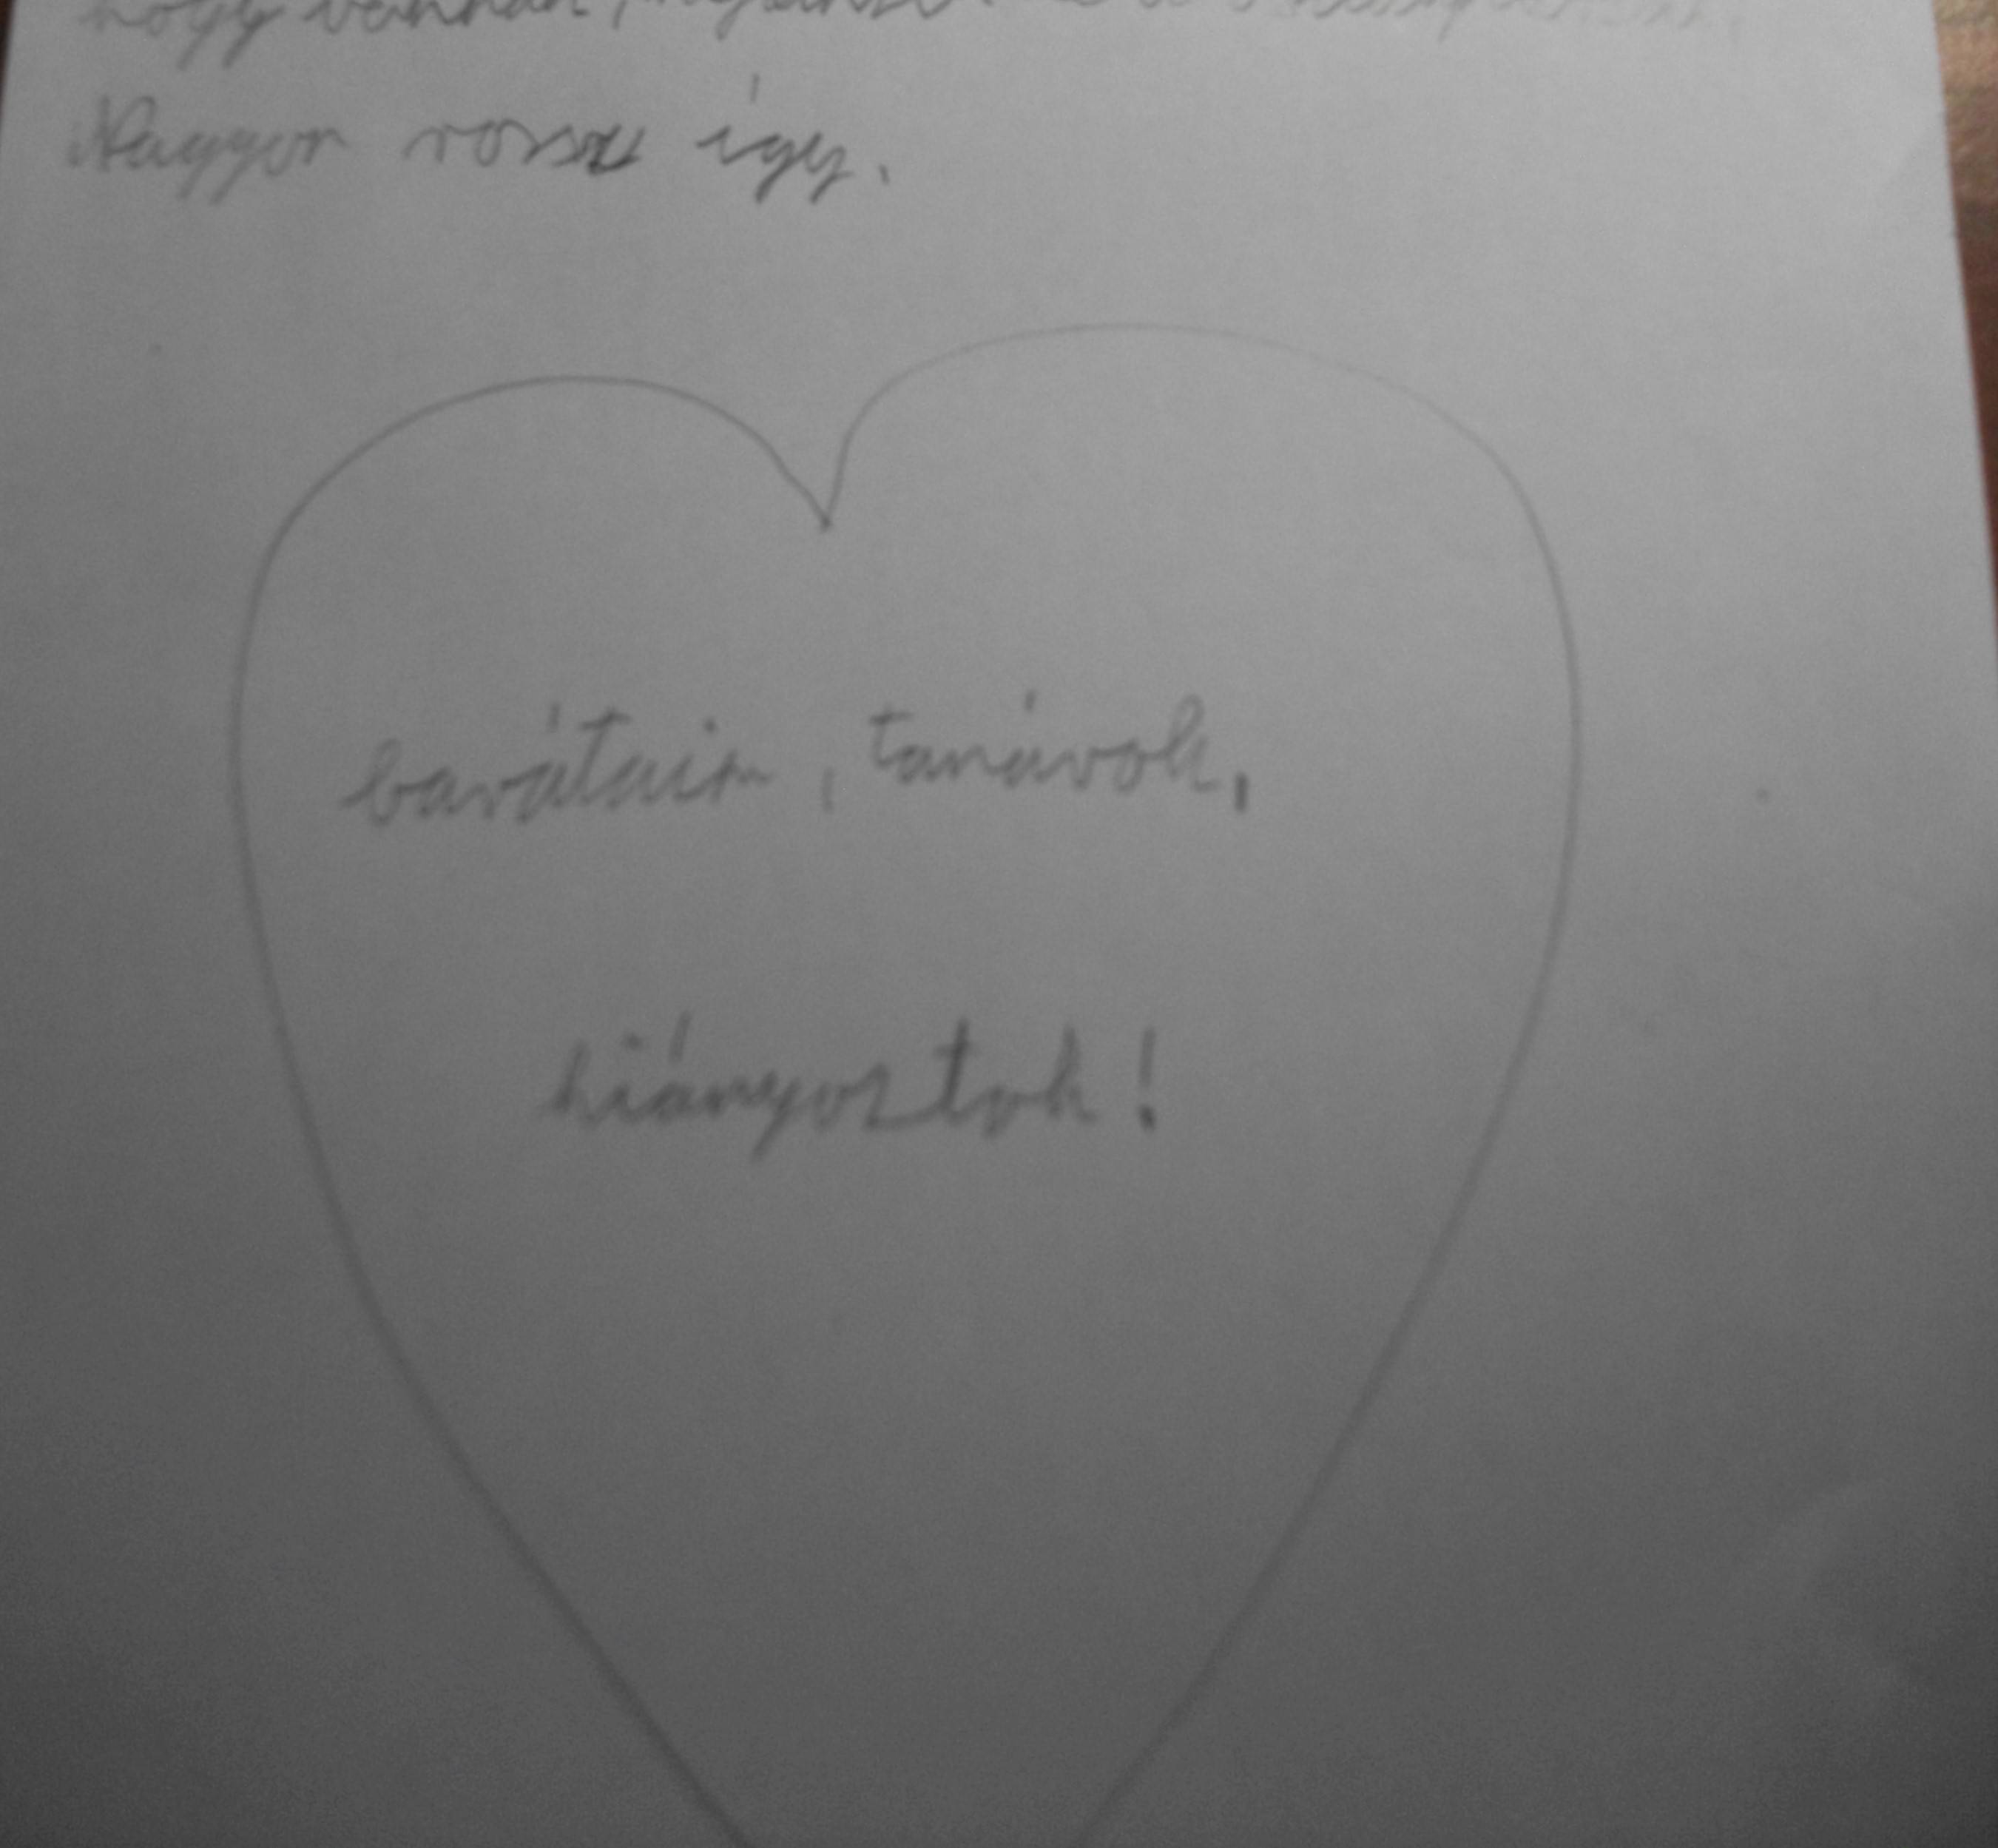 hogy vannak,
Nagyon rossz így.
barátaim, tanárok,
hiányoztok!